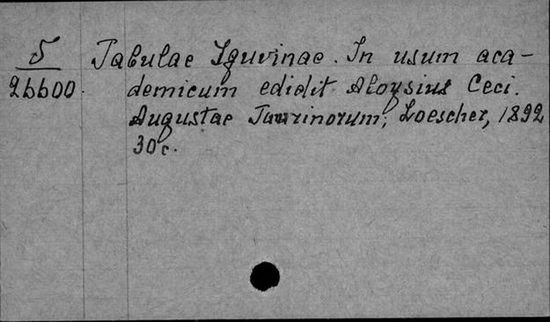 5 Tabulae Iguvinae. In usum aca-
26600. demicum edidit Aloysius Ceci.
Augustae Taurinorum, Loescher, 1892
30 c.